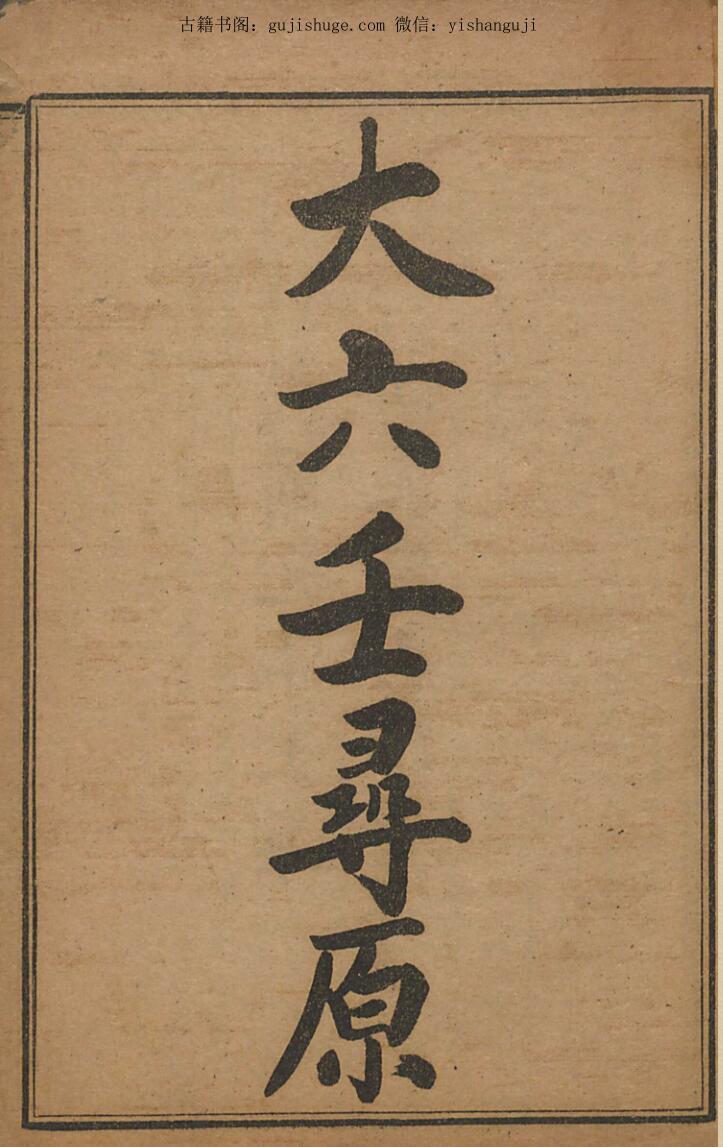 古籍书阁：gujishuge.com 微信：yishanguji
大六壬尋原